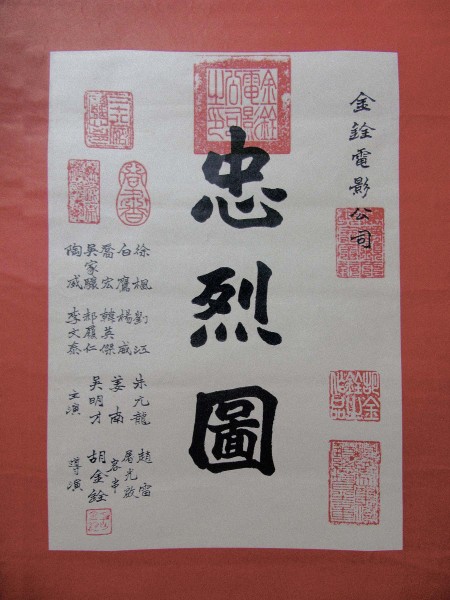 金銓電影公司
金銓電影公司之印
忠烈圖
徐楓 劉江 朱元龍 趙雷
白鷹 楊威 姜南 屠光啟
喬宏 韓英傑 客串
吳家驤 郝履仁 吳明才 胡金銓
陶威 李文泰 主演 導演